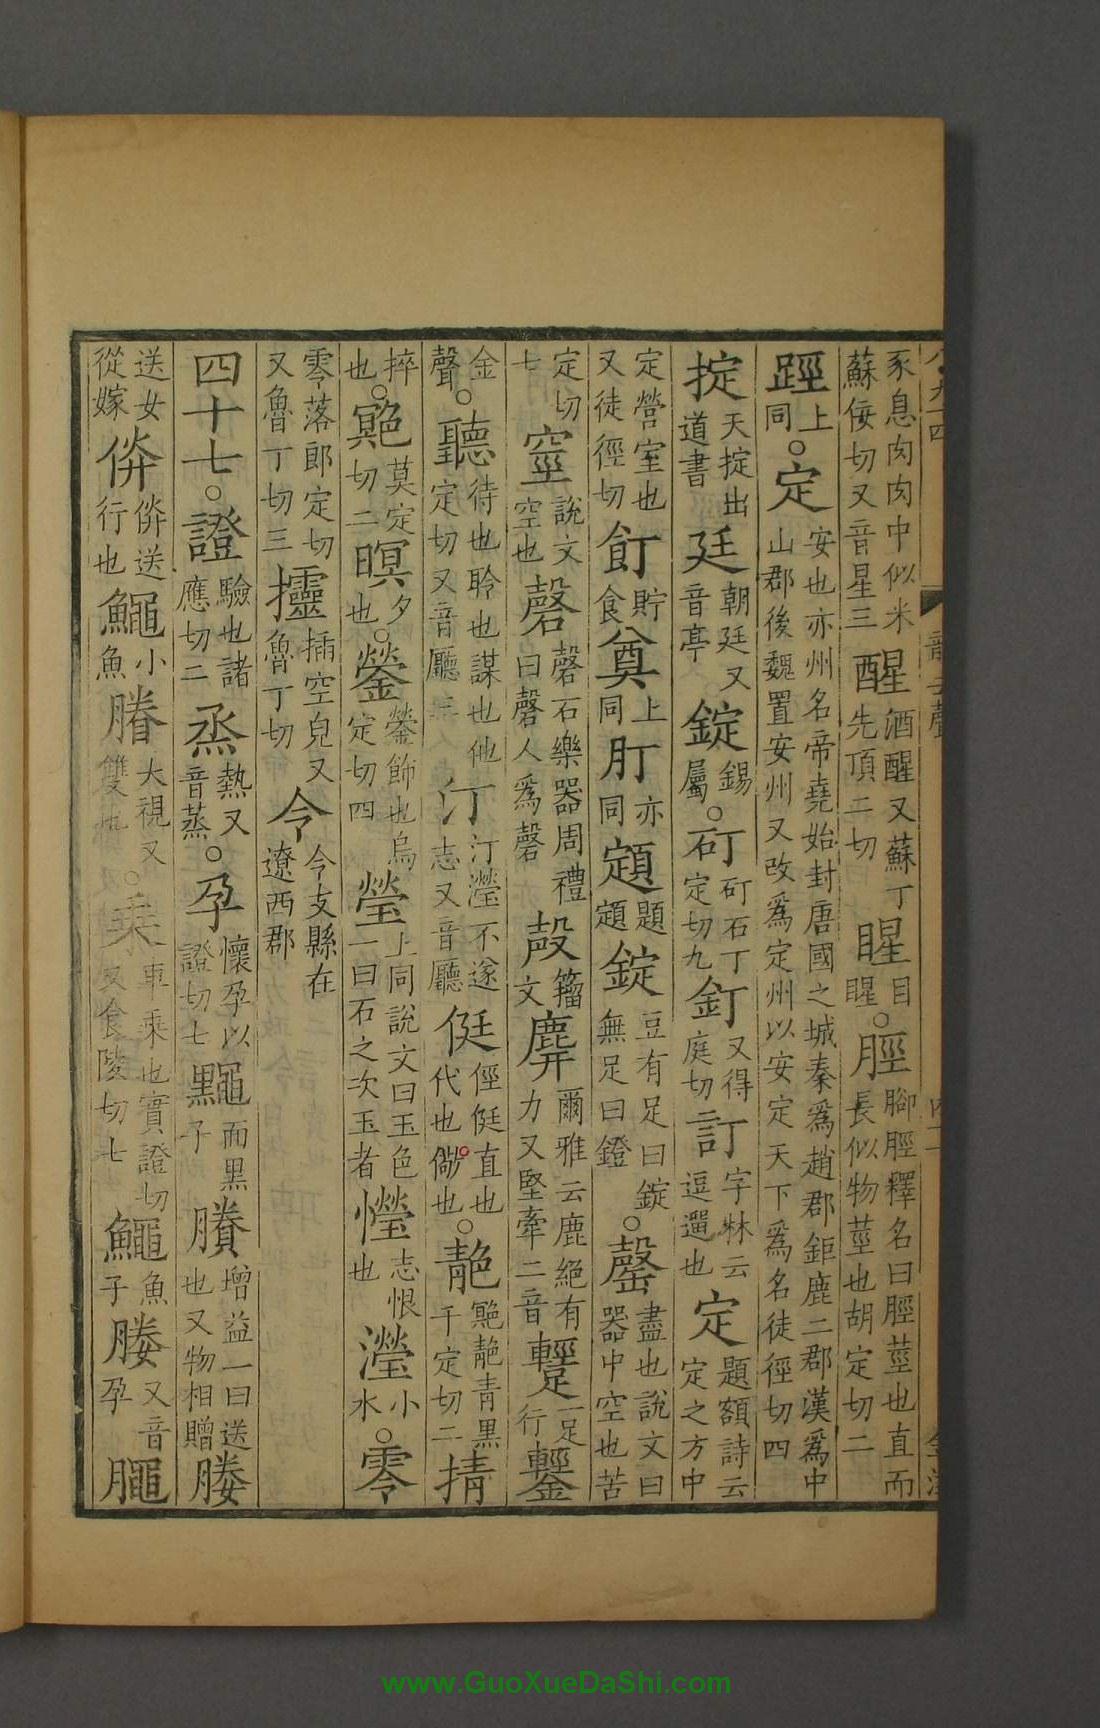 豕息肉肉中似米蘇佞切又音星三醒酒醒又蘇丁先頂二切睲目睲○脛腳脛釋名曰脛莖也直而長似物莖也胡定切二
踁上同○定安也亦州名帝堯始封唐國之城秦爲趙郡鉅鹿二郡漢爲中山郡後魏置安州又改爲定州以安定天下爲名徒徑切四
掟天掟出道書廷朝廷又音亭錠錫屬○矴矴石丁定切九釘又得庭切訂字林云逗遛也定題額詩云定之方中
定營室也又徒徑切飣貯食奠上同肎亦同顁題顁錠豆有足曰錠無足曰鐙○罄盡也說文曰器中空也苦
定切七窒說文空也磬磬石樂器周禮曰磬人爲磬殸籀文麉爾雅云鹿絕有力又堅牽二音䡰一足行鑋
金聲○聽待也聆也謀也他定切又音廳三汀汀瀅不遂志又音廳侹俓侹直也代也㒉也○靘䫤靘青黑千定切二掅
捽也○䫤莫定切二暝夕也○鎣鎣飾也烏定切四瑩上同說文曰玉色一曰石之次玉者㦕志恨也瀅小水○零
零落郎定切又魯丁切三𢺰插空皃又魯丁切令令支縣在遼西郡
四十七○證驗也諸應切二烝熱又音蒸○孕懷孕以證切七䵴面黑子賸增益一曰送也又物相贈媵
送女從嫁倴倴送行也鱦小魚䞉大視又雙也○乗車乗也實證切又食陵切七鱦魚子媵又音孕䵴
www.GuoXueDaShi.com